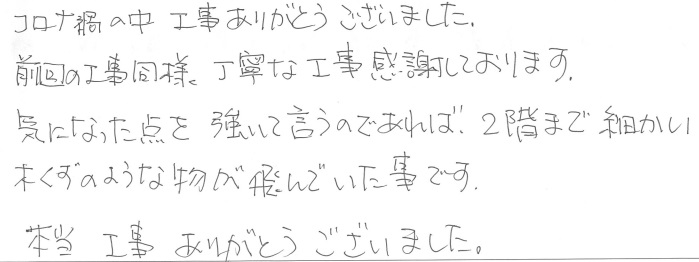 コロナ禍の中 工事ありがとうございました.
前回の工事同様、丁寧な工事感謝しております.
気になった点を 強いて言うのであれば、2階まで細かい
木くずのような物が飛んでいた事です.
本当 工事 ありがとうございました。